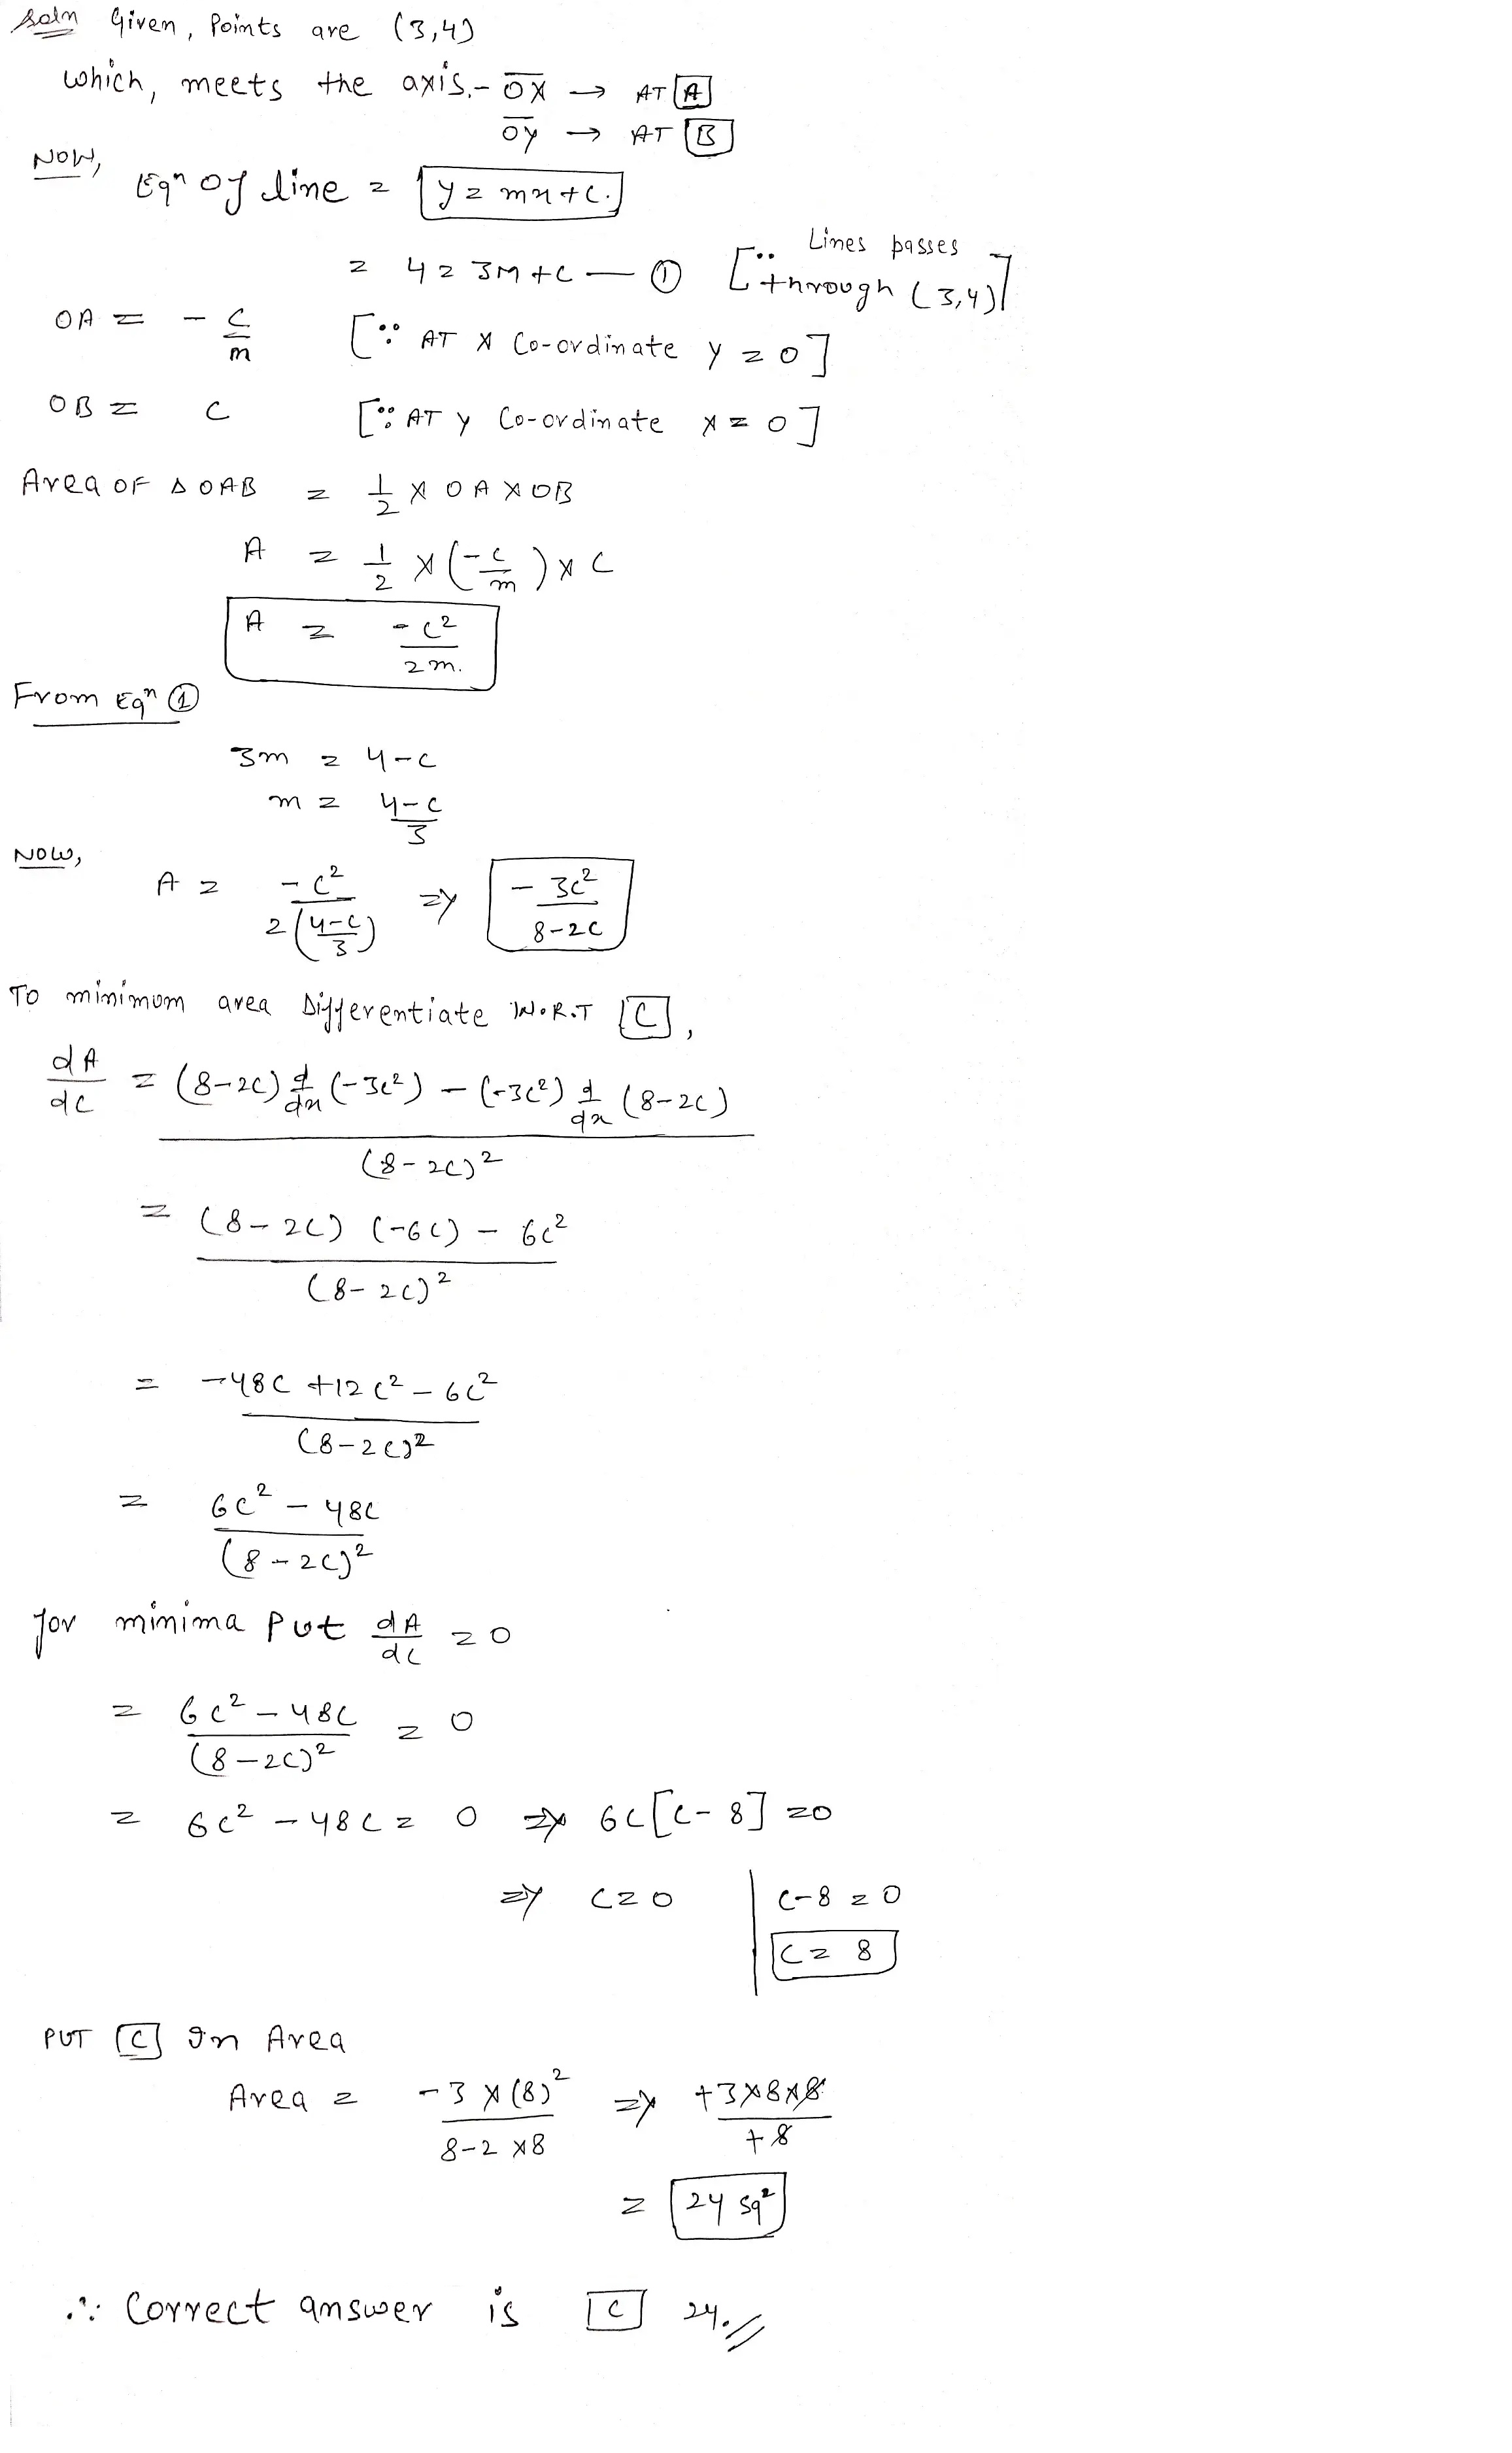 Soln Given, Points are (3,4)
which, meets the axis.- OX → AT A
OY → AT B
NOW,
Eqn Of line = y = mx+c.
= 4 = 3M+C — ① [∵ Lines passes through (3,4)]
OA = - c/m [∵ AT X Co-ordinate y = 0]
OB = C [∵ AT y Co-ordinate x = 0]
Area OF Δ OAB = 1/2 × OA × OB
A = 1/2 × (-c/m) × C
A = -c²/2m.
From Eqn ①
3m = 4-c
m = 4-c/3
NOW,
A = -c²/2(4-c/3) ⇒ - 3c²/8-2c
To minimum area Differentiate W.R.T C,
dA/dc = (8-2c) d/dx (-3c²) - (-3c²) d/dx (8-2c) / (8-2c)²
= (8-2c) (-6c) - 6c² / (8-2c)²
= -48c +12c² - 6c² / (8-2c)²
= 6c² - 48c / (8-2c)²
for minima Put dA/dc = 0
= 6c² - 48c / (8-2c)² = 0
= 6c² - 48c = 0 ⇒ 6c[c-8] = 0
⇒ c = 0 | c-8 = 0
c = 8
PUT C In Area
Area = -3 × (8)² / 8-2×8 ⇒ +3×8×8 / +8
= 24 sq²
∴ Correct answer is C 24.